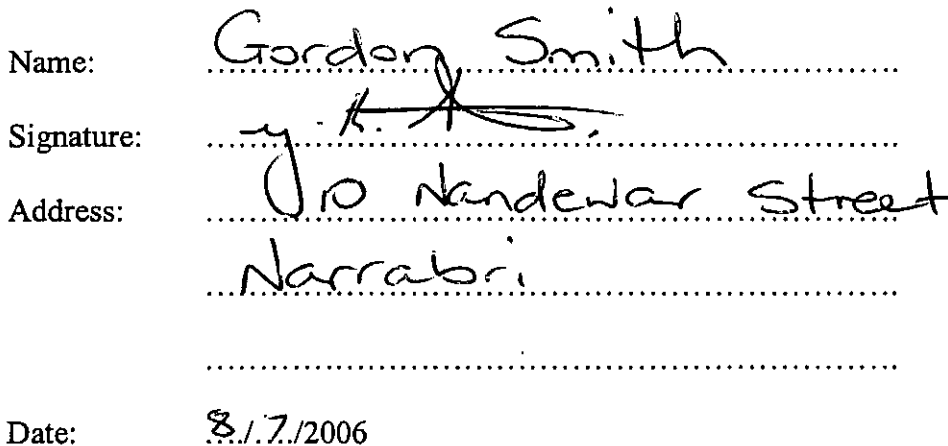 Name: Gordon Smith
Signature:
Address: 10 Nandewar Street
Narrabri
Date: 8/7/2006